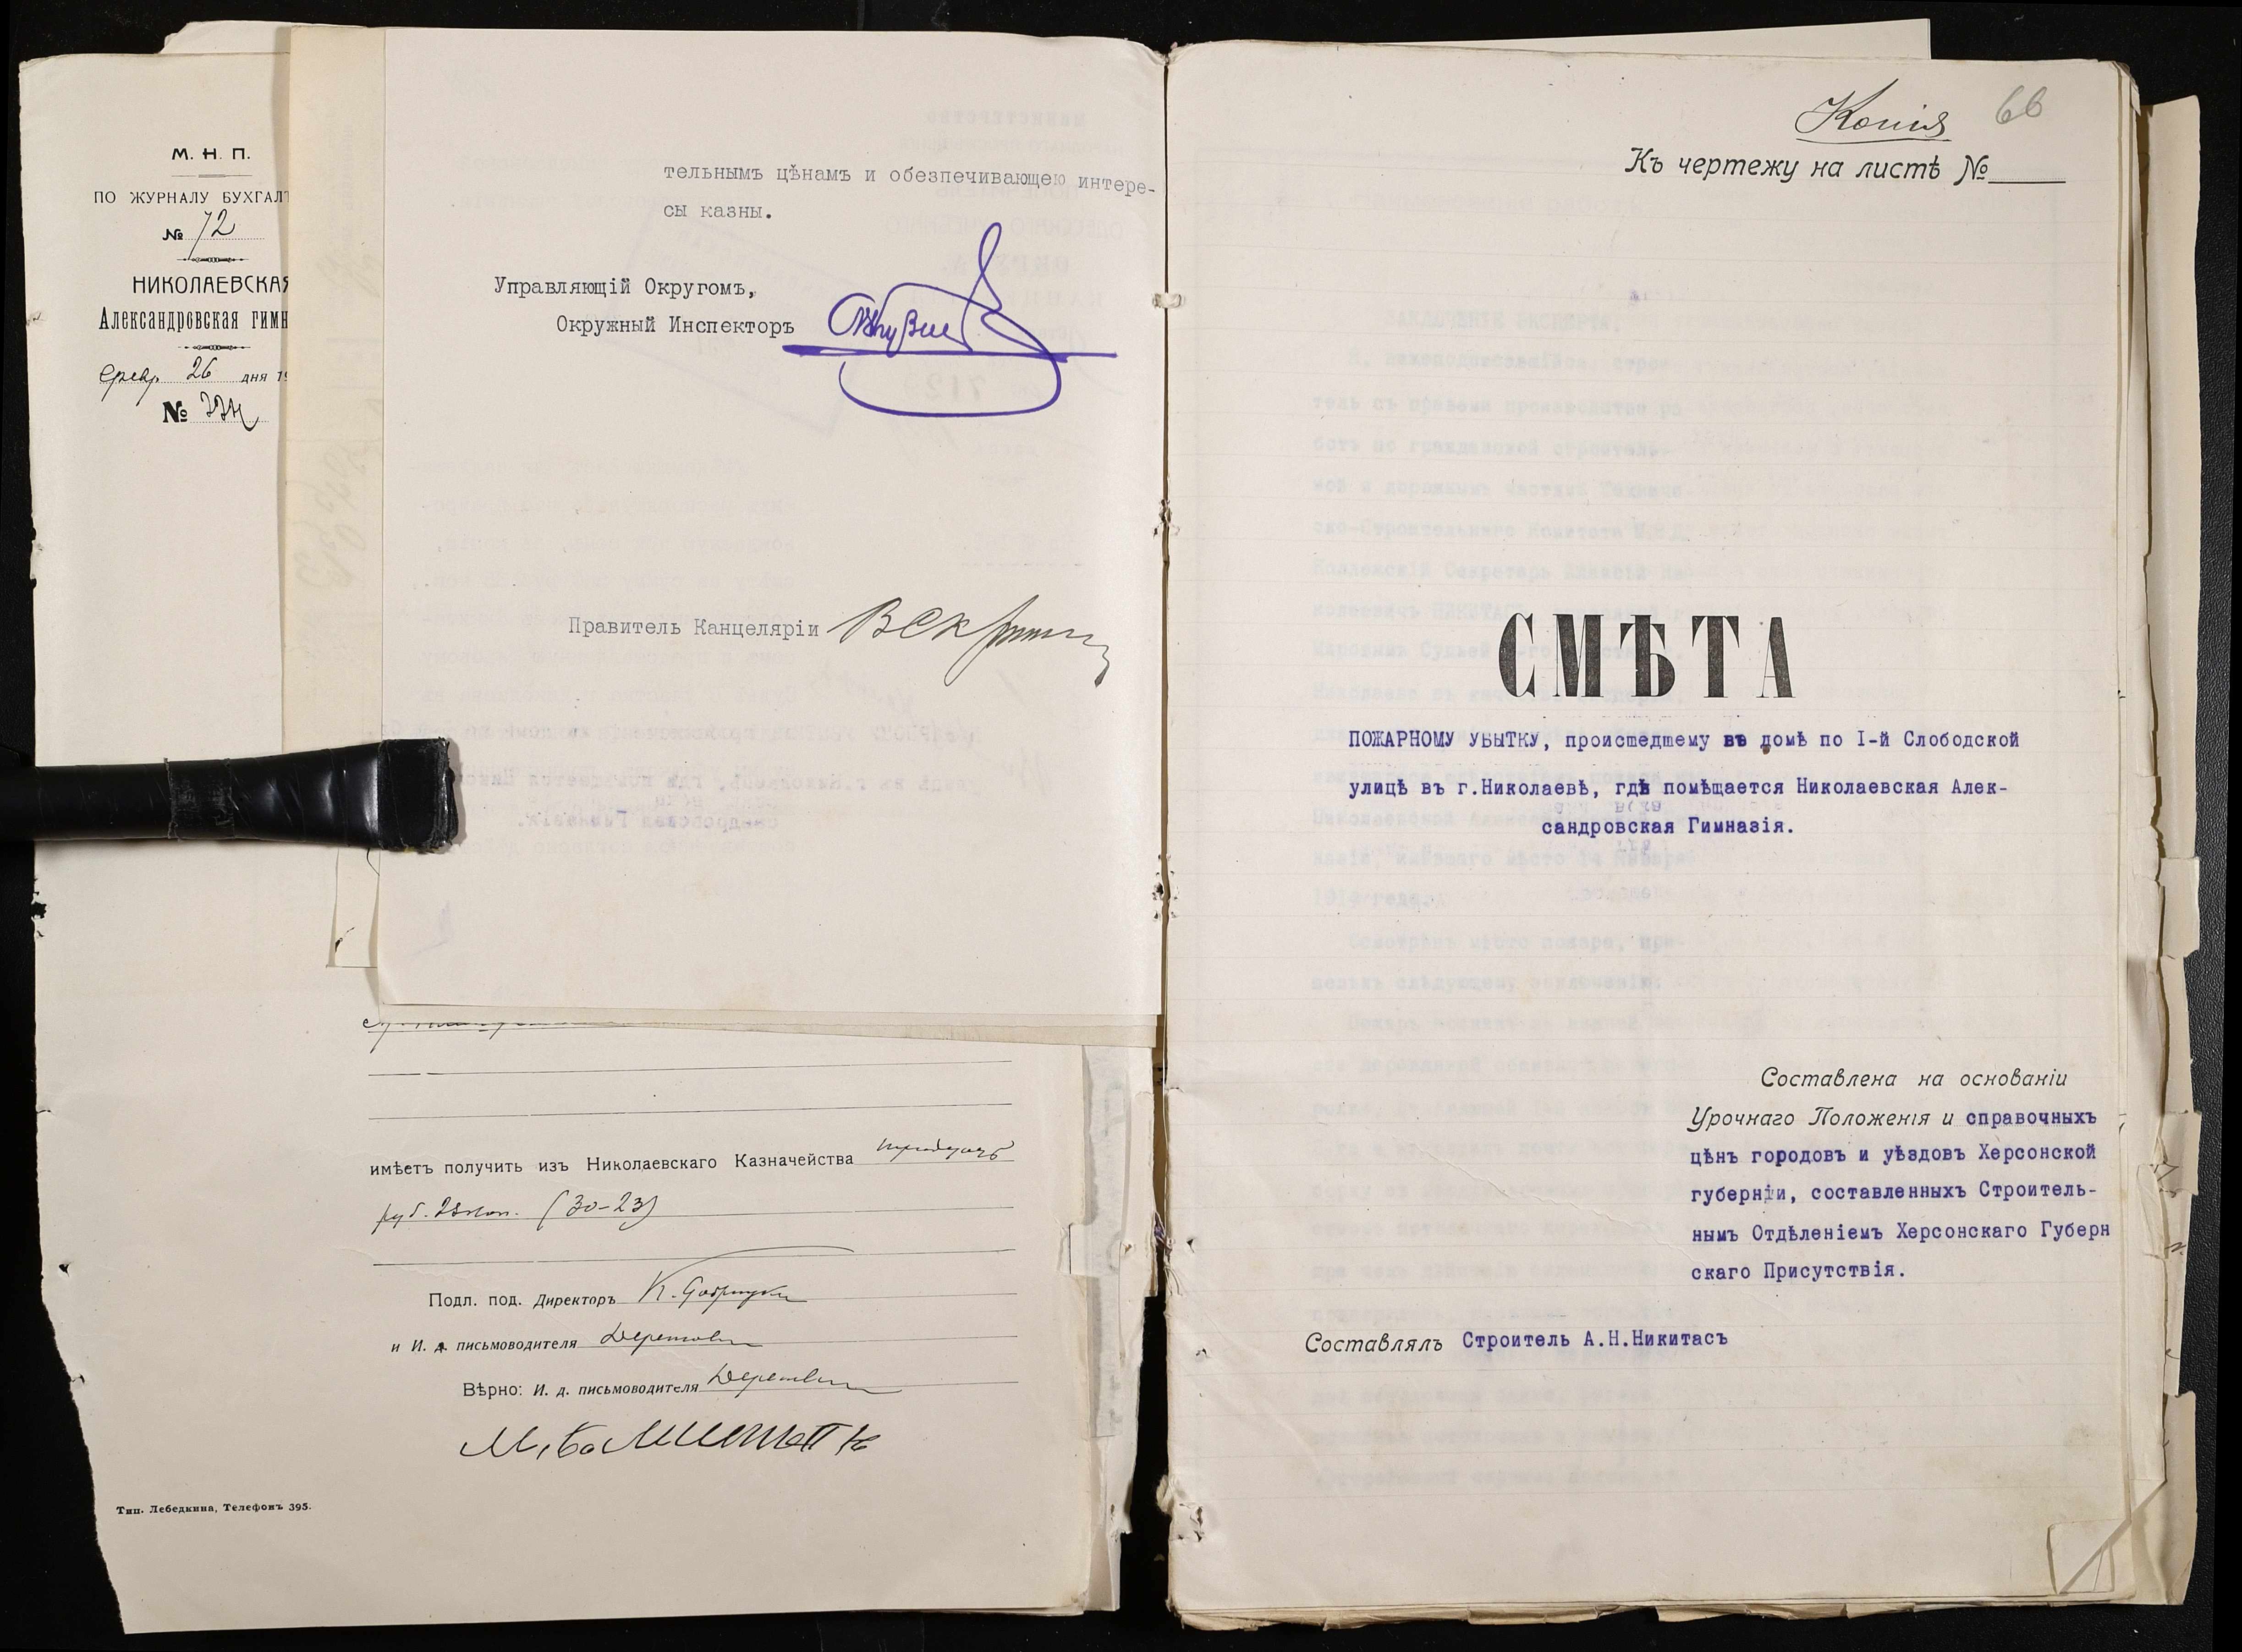 М. Н. П.
ПО ЖУРНАЛУ БУХГАЛТ
№ 72
НИКОЛАЕВСКАЯ
Александровская гимн
февр. 26 дня 19
№
тельнымъ цѣнамъ и обезпечивающею интере-
сы казны.
Управляющій Округомъ,
Окружный Инспекторъ
Правитель Канцеляріи
имѣетъ получить изъ Николаевскаго Казначейства тридцать
руб. 23 коп. (30-23)
Подл. под. Директоръ К.
и И. д. письмоводителя
Вѣрно: И. д. письмоводителя
Тип. Лебедкина, Телефонъ 395.
Копія 66
Къ чертежу на листѣ №
СМѢТА
ПОЖАРНОМУ УБЫТКУ, происшедшему въ домѣ по I-й Слободской
улицѣ въ г.Николаевѣ, гдѣ помѣщается Николаевская Алек-
сандровская Гимназія.
Составлена на основаніи
Урочнаго Положенія и справочныхъ
цѣнъ городовъ и уѣздовъ Херсонской
губерніи, составленныхъ Строитель-
нымъ Отдѣленіемъ Херсонскаго Губерн
скаго Присутствія.
Составлялъ Строитель А.Н.Никитасъ